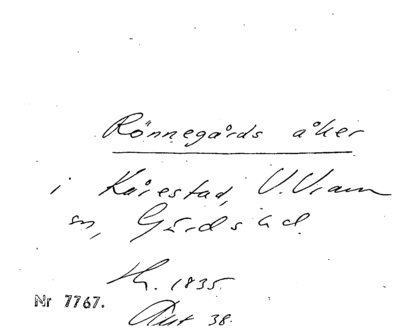 Rönnegårds åker
i Kårestad, V. Vram
sn, Gärds hd.
1835.
Nr 7767.
38.